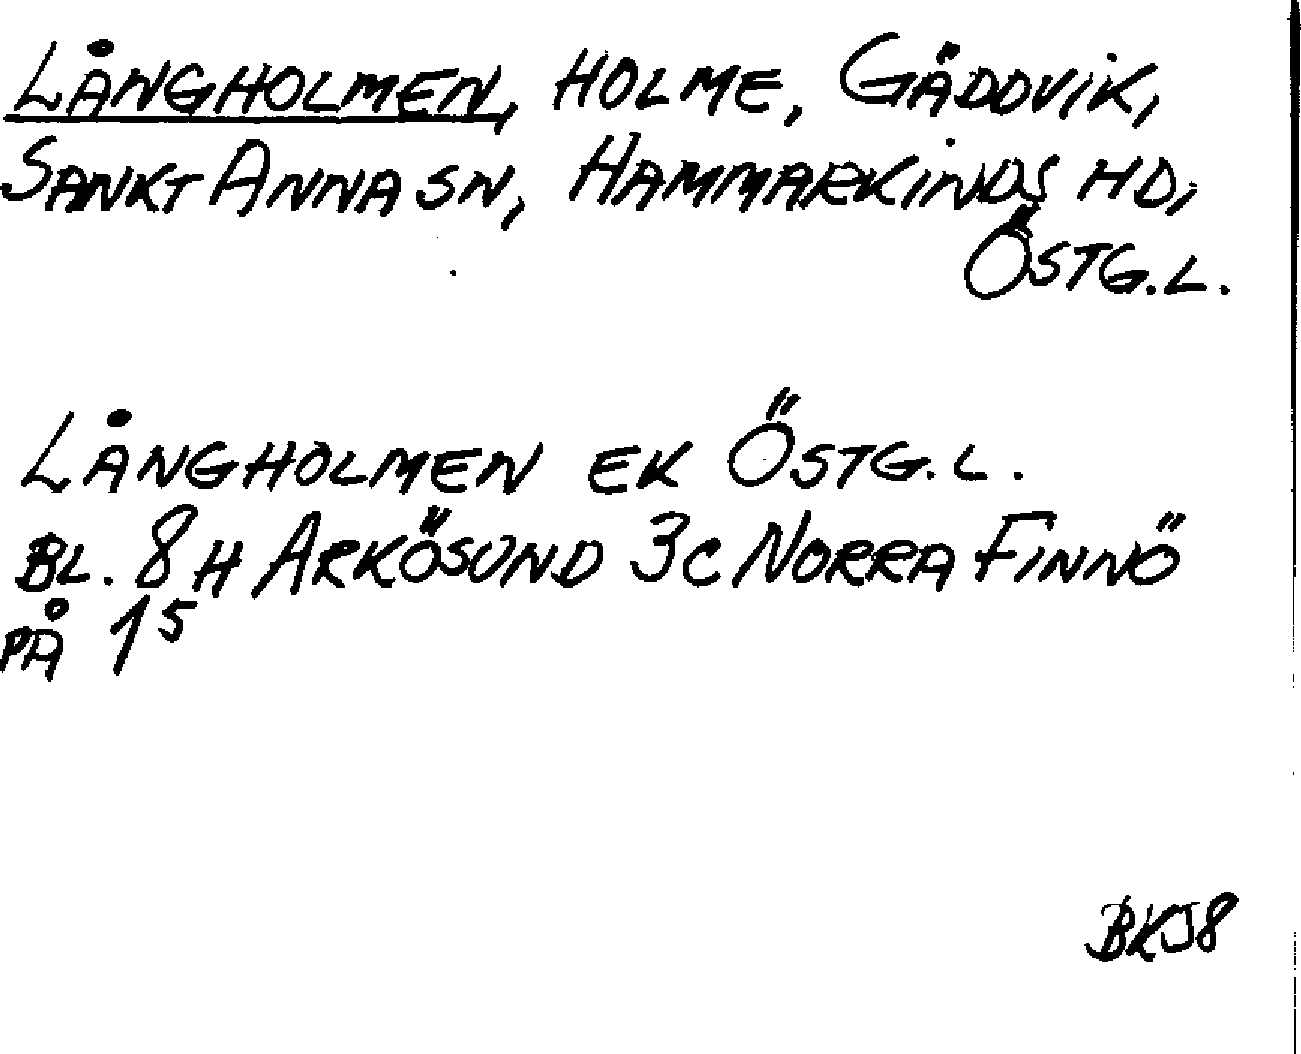 LÅNGHOLMEN, HOLME, GÄDDVIK,
SANKT ANNA SN, HAMMARKINDS HD,
ÖSTG.L.
LÅNGHOLMEN EK ÖSTG.L.
BL. 8H ARKÖSUND 3C NORRA FINNÖ
PÅ 15
BKJ8